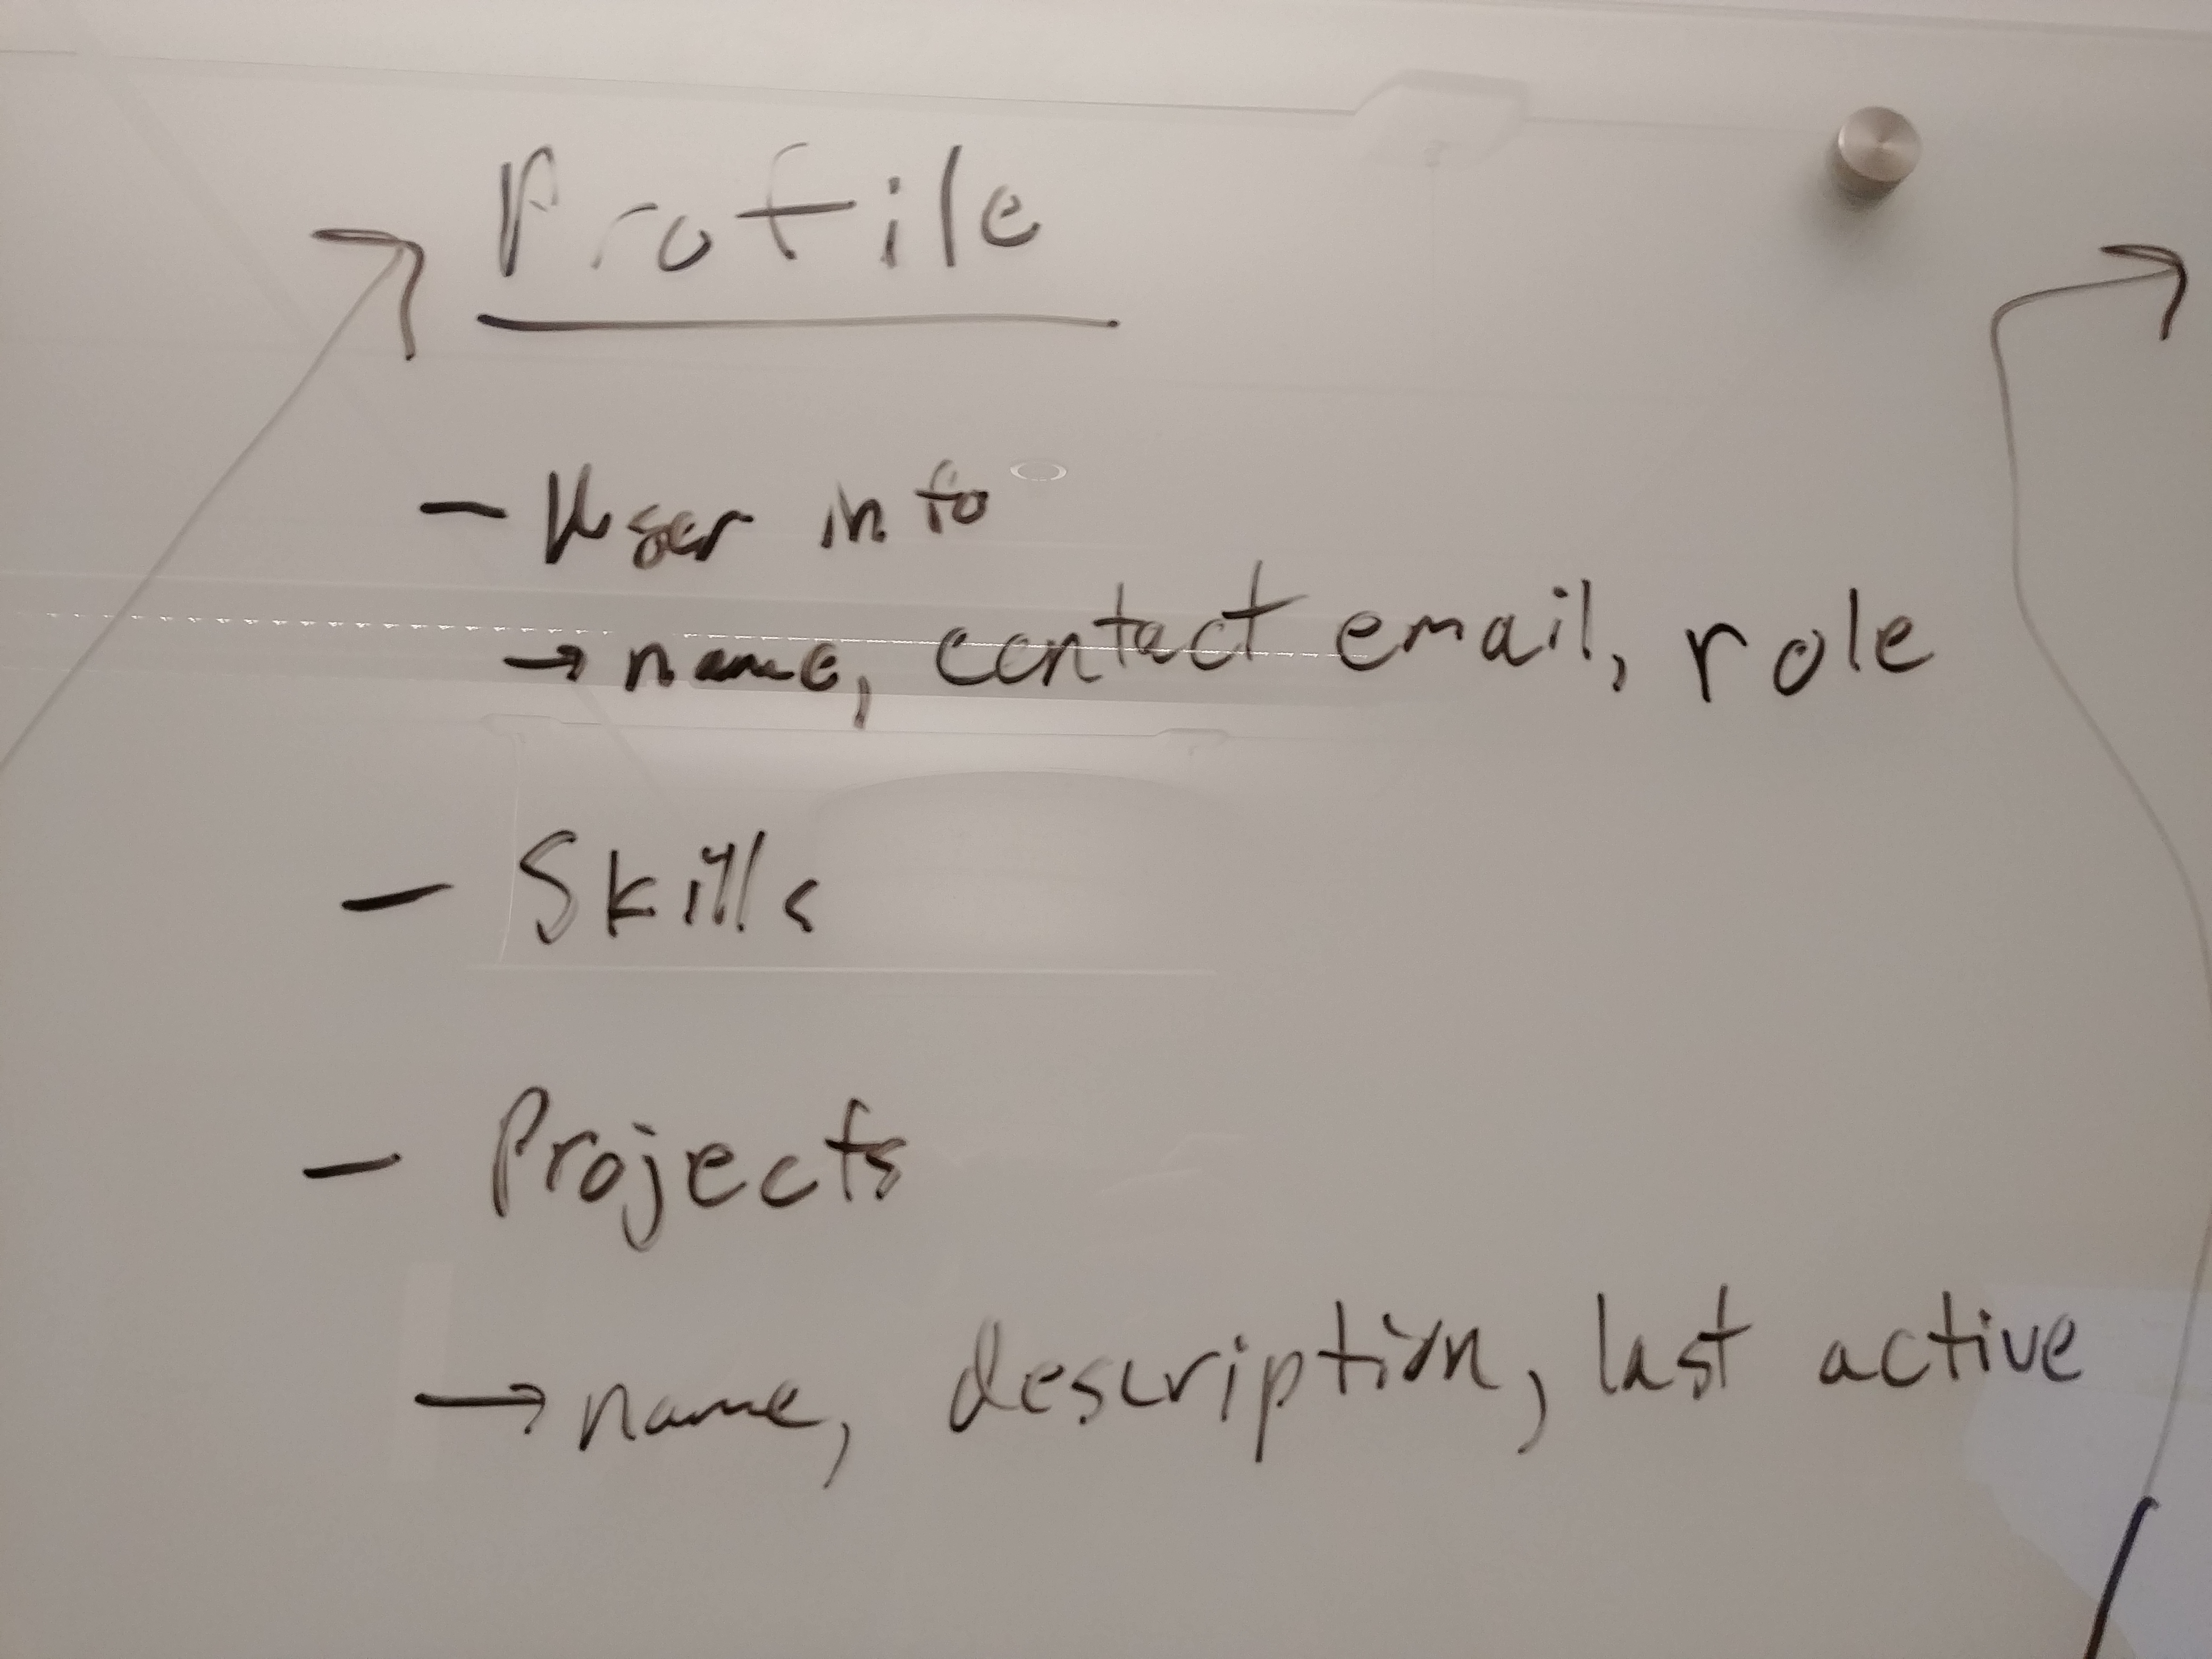 Profile
- User info
→ name, contact email, role
- Skills
- Projects
→ name, description, last active